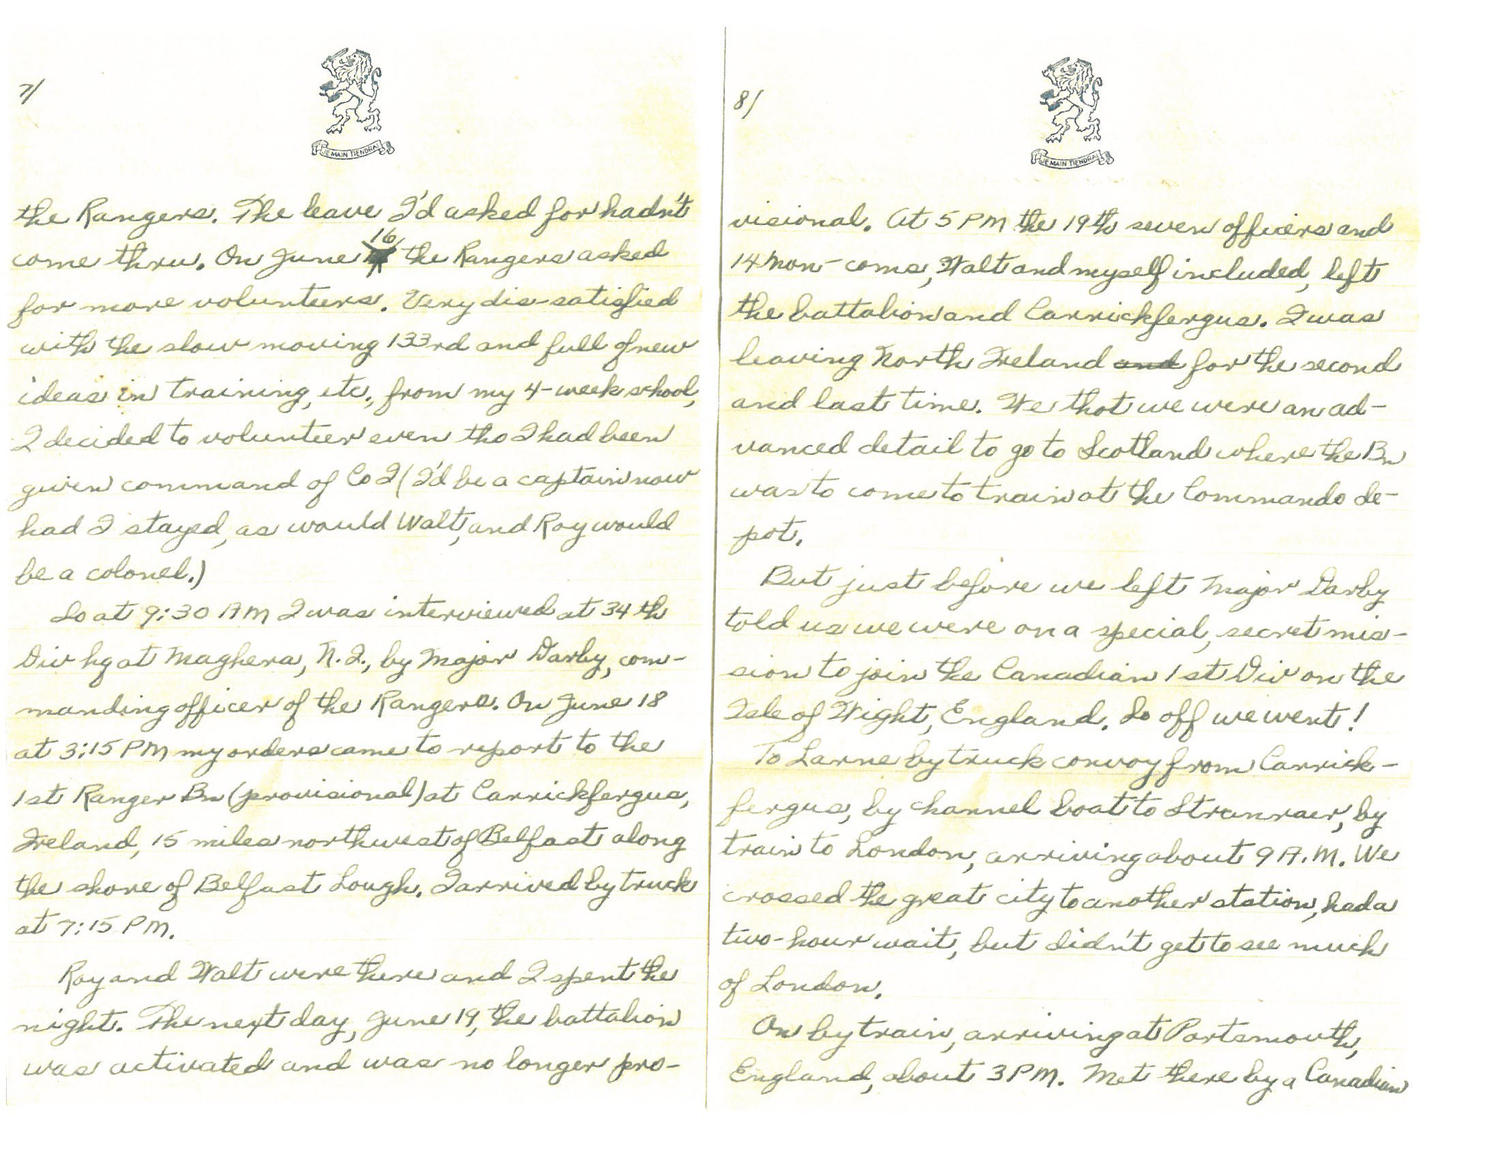 7/
JE MAIN TIENDRAI
the Rangers. The leave I'd asked for hadn't
come thru. On June 16 the Rangers asked
for more volunteers. Very dis-satisfied
with the slow moving 133rd and full of new
ideas in training, etc., from my 4-week school,
I decided to volunteer even tho I had been
given command of Co I (I'd be a captain now
had I stayed, as would Walt, and Roy would
be a colonel.)
So at 9:30 AM I was interviewed at 34th
Div hq at Maghera, N.I., by Major Darby, com-
manding officer of the Rangers. On June 18
at 3:15 PM my orders came to report to the
1st Ranger Bn (provisional) at Carrickfergus,
Ireland, 15 miles northwest of Belfast along
the shore of Belfast Lough. I arrived by truck
at 7:15 PM.
Roy and Walt were there and I spent the
night. The next day, June 19, the battalion
was activated and was no longer pro-
8/
JE MAIN TIENDRAI
visional. At 5 PM the 19th seven officers and
14 non-coms, Walt and myself included, left
the battalion and Carrickfergus. I was
leaving North Ireland and for the second
and last time. We thot we were an ad-
vanced detail to go to Scotland where the Bn
was to come to train at the Commando de-
pot.
But just before we left Major Darby
told us we were on a special, secret mis-
sion to join the Canadian 1st Div on the
Isle of Wight, England. So off we went!
To Larne by truck convoy from Carrick-
fergus, by channel boat to Stranraer, by
train to London, arriving about 9 A.M. We
crossed the great city to another station, had a
two-hour wait, but didn't get to see much
of London.
On by train, arriving at Portsmouth,
England, about 3 PM. Met there by a Canadian